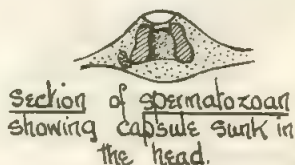 Section of spermatozoan
showing capsule sunk in
the head.